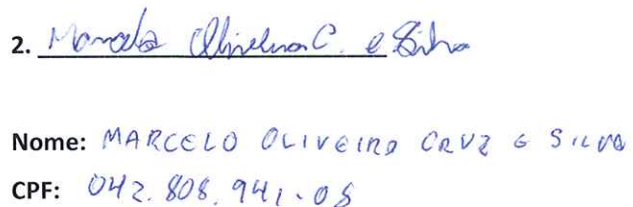 2. Marcelo Oliveira C. e Silva
Nome: MARCELO OLIVEIRA CRUZ E SILVA
CPF: 042.808.941-08